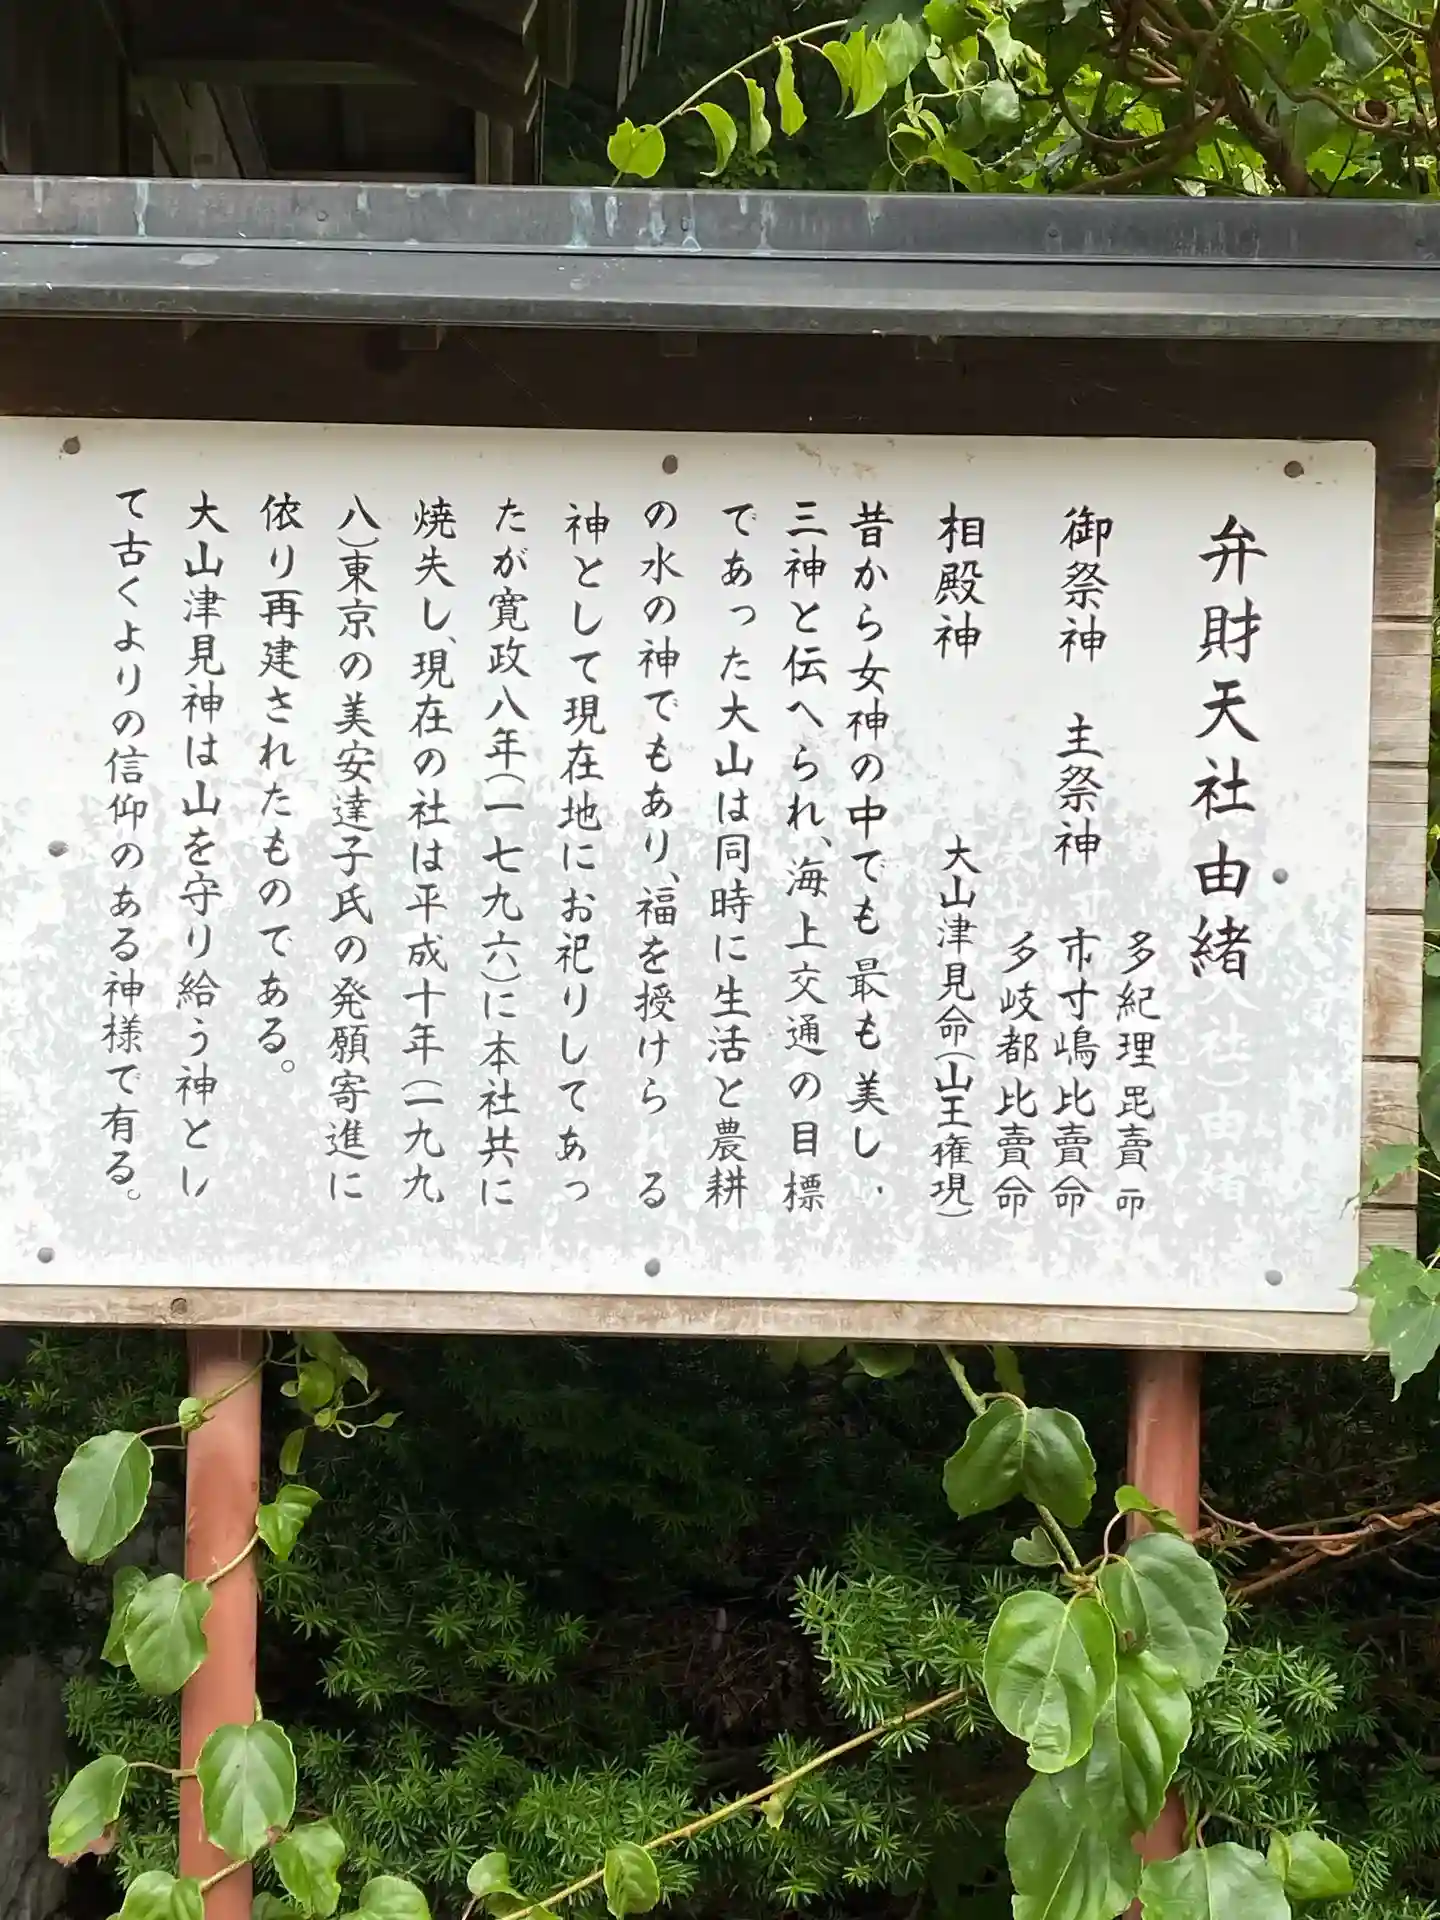 弁財天社由緒
多紀理毘賣命
御祭神 主祭神 市寸嶋比賣命
多岐都比賣命
相殿神 大山津見命(山王権現)
昔から女神の中でも最も美し
三神と伝へられ、海上交通の目標
であった大山は同時に生活と農耕
の水の神でもあり、福を授けらる
神として現在地にお祀りしてあっ
たが寛政八年(一七九六)に本社共に
焼失し、現在の社は平成十年(一九九
八)東京の美安達子氏の発願寄進に
依り再建されたものである。
大山津見神は山を守り給う神とし
て古くよりの信仰のある神様で有る。